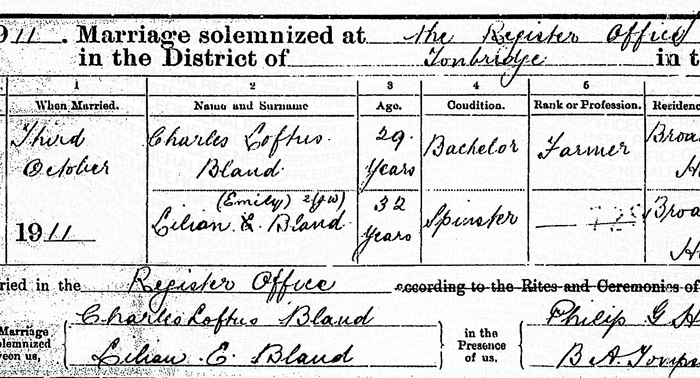 911. Marriage solemnized at the Register Office
in the District of Tonbridge in t
1 2 3 4 5
When Married. Name and Surname Age. Condition. Rank or Profession. Residenc
Third October 1911
Charles Loftus Bland
29 Years
Bachelor
Farmer
Broa
(Emily)
Lilian E. Bland
32 Years
Spinster
Broa
ried in the Register Office according to the Rites and Ceremonies of
Marriage
olemnized
ween us,
Charles Loftus Bland
Lilian E. Bland
in the
Presence
of us,
Philip G H
B A